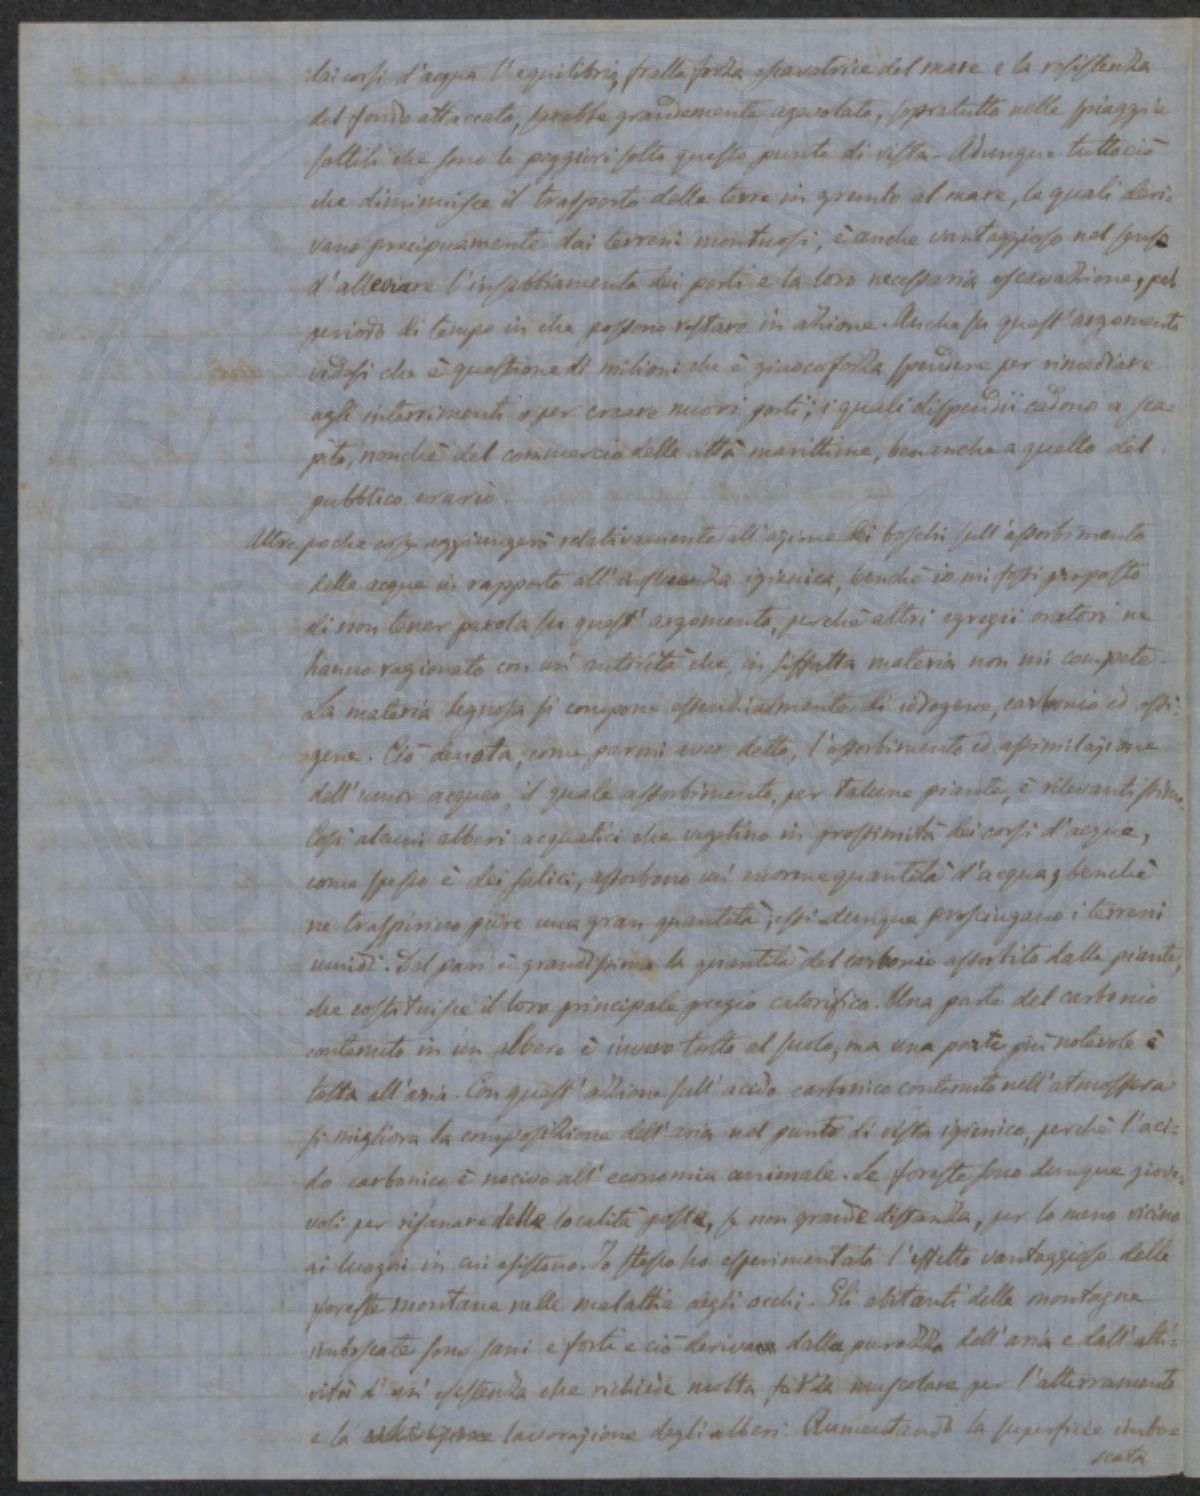 dai corsi d'acqua l'equilibrio, fralla forza escavatrice del mare e la resistenza
del fondo attaccato, sarebbe grandemente agevolato, sopratutto nelle spiaggie
sottili che sono le peggiori sotto questo punto di vista. Adunque tutto ciò
che diminuisce il trasporto delle terre in grembo al mare, le quali deri-
vano precipuamente dai terreni montuosi, è anche vantaggioso nel senso
d'alleviare l'insabbiamento dei porti e la loro necessaria escavazione, pel
periodo di tempo in che possono restare in azione. Anche su quest'argomento
vedesi che è questione di milioni che è giuocoforza spendere per rimediare
agli interrimenti o per creare nuovi porti; i quali dispendii cadono a sca-
pito, nonchè del commercio delle città marittime, benanche a quello del
pubblico erario.
Altre poche cose aggiungerò relativamente all'azione dei boschi sull'assorbimento
delle acque in rapporto all'influenza igienica, benchè io mi fossi proposto
di non tener parola su quest'argomento, perchè altri egregii oratori ne
hanno ragionato con un'autorità che, in siffatta materia non mi compete.
La materia legnosa si compone essenzialmente di idrogeno, carbonio ed ossi-
geno. Ciò denota, come parmi aver detto, l'assorbimento ed assimilazione
dell'umor acqueo, il quale assorbimento, per talune piante, è rilevantissimo.
Così alcuni alberi acquatici che vegetino in prossimità dei corsi d'acqua,
come spesso è dei salici, assorbono un'enorme quantità d'acqua, benchè
ne traspirino pure una gran quantità; essi dunque prosciugano i terreni
umidi. Del pari è grandissima la quantità del carbonio assorbito dalle piante,
che costituisce il loro principale pregio calorifico. Una parte del carbonio
contenuto in un albero è invero tolto al suolo, ma una parte più notevole è
tolta all'aria. Con quest'azione sull'acido carbonico contenuto nell'atmosfera
si migliora la composizione dell'aria nel punto di vista igienico, perchè l'aci-
do carbonico è nocivo all'economia animale. Le foreste sono dunque giove-
voli per risanare delle località poste, se non grande distanza, per lo meno vicino
ai luoghi in cui esistono. Io stesso ho esperimentato l'effetto vantaggioso delle
foreste montane nelle malattie degli occhi. Gli abitanti delle montagne
imboscate sono sani e forti e ciò deriva dalla purezza dell'aria e dall'atti-
vità d'un'esistenza che richiede molta forza muscolare per l'atterramento
e la lavorazione degli alberi. Aumentando la superficie imbo-
scata